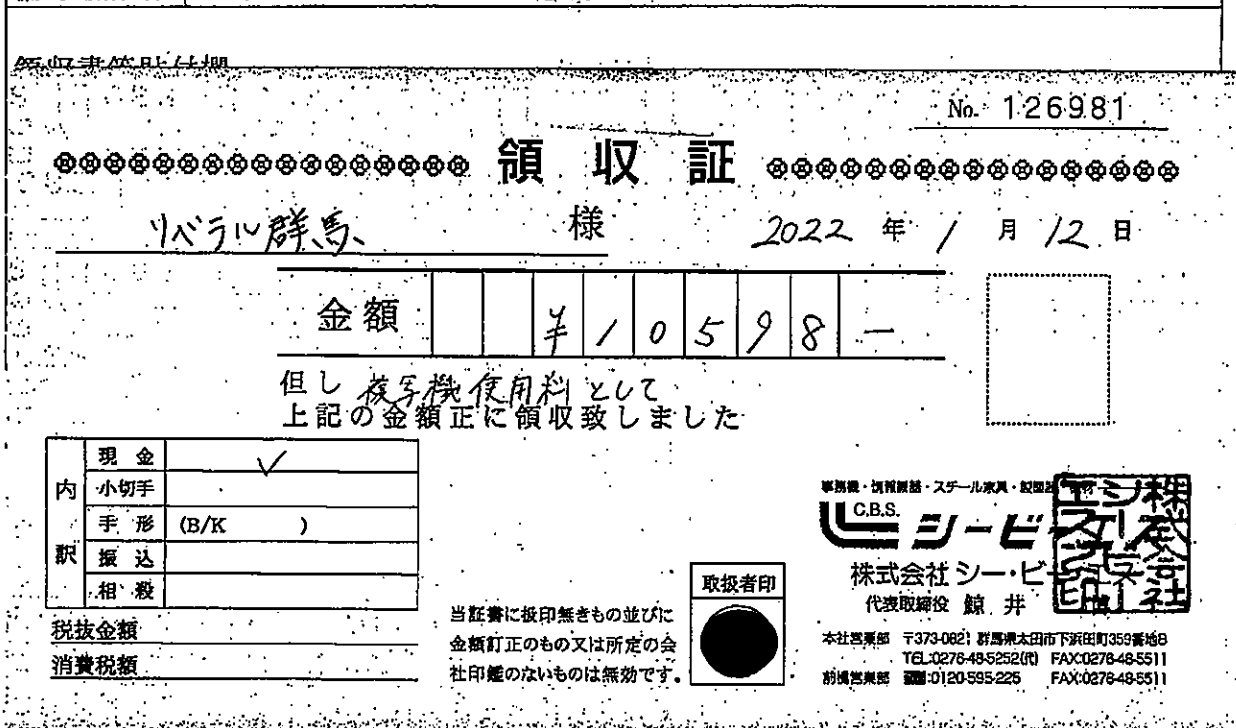 領収書等貼付欄
No. 126981
領収証
リベラル群馬 様 2022年1月12日
金額 ¥10598-
但し 複写機使用料として
上記の金額正に領収致しました
内訳
現金 ✓
小切手
手形 (B/K )
振込
相殺
税抜金額
消費税額
当証書に扱印無きもの並びに
金額訂正のもの又は所定の会
社印鑑のないものは無効です。
取扱者印
事務機・情報機器・スチール家具・製図器
C.B.S. シービー
株式会社 シー・ビー・エス
代表取締役 鯨井
本社営業部 〒373-0821 群馬県太田市下浜田町359番地8
TEL:0276-48-5252(代) FAX:0276-48-5511
前橋営業部 :0120-595-225 FAX:0276-48-5511